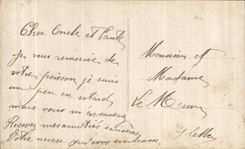 Cher Oncle et Tante
Je vous remercie de
votre poisson je suis
un peu en retard
mais vous m'excuserez
Recevez mes amitiés sincères
Votre neveu qui vous embrasse
Monsieur et
Madame
Le